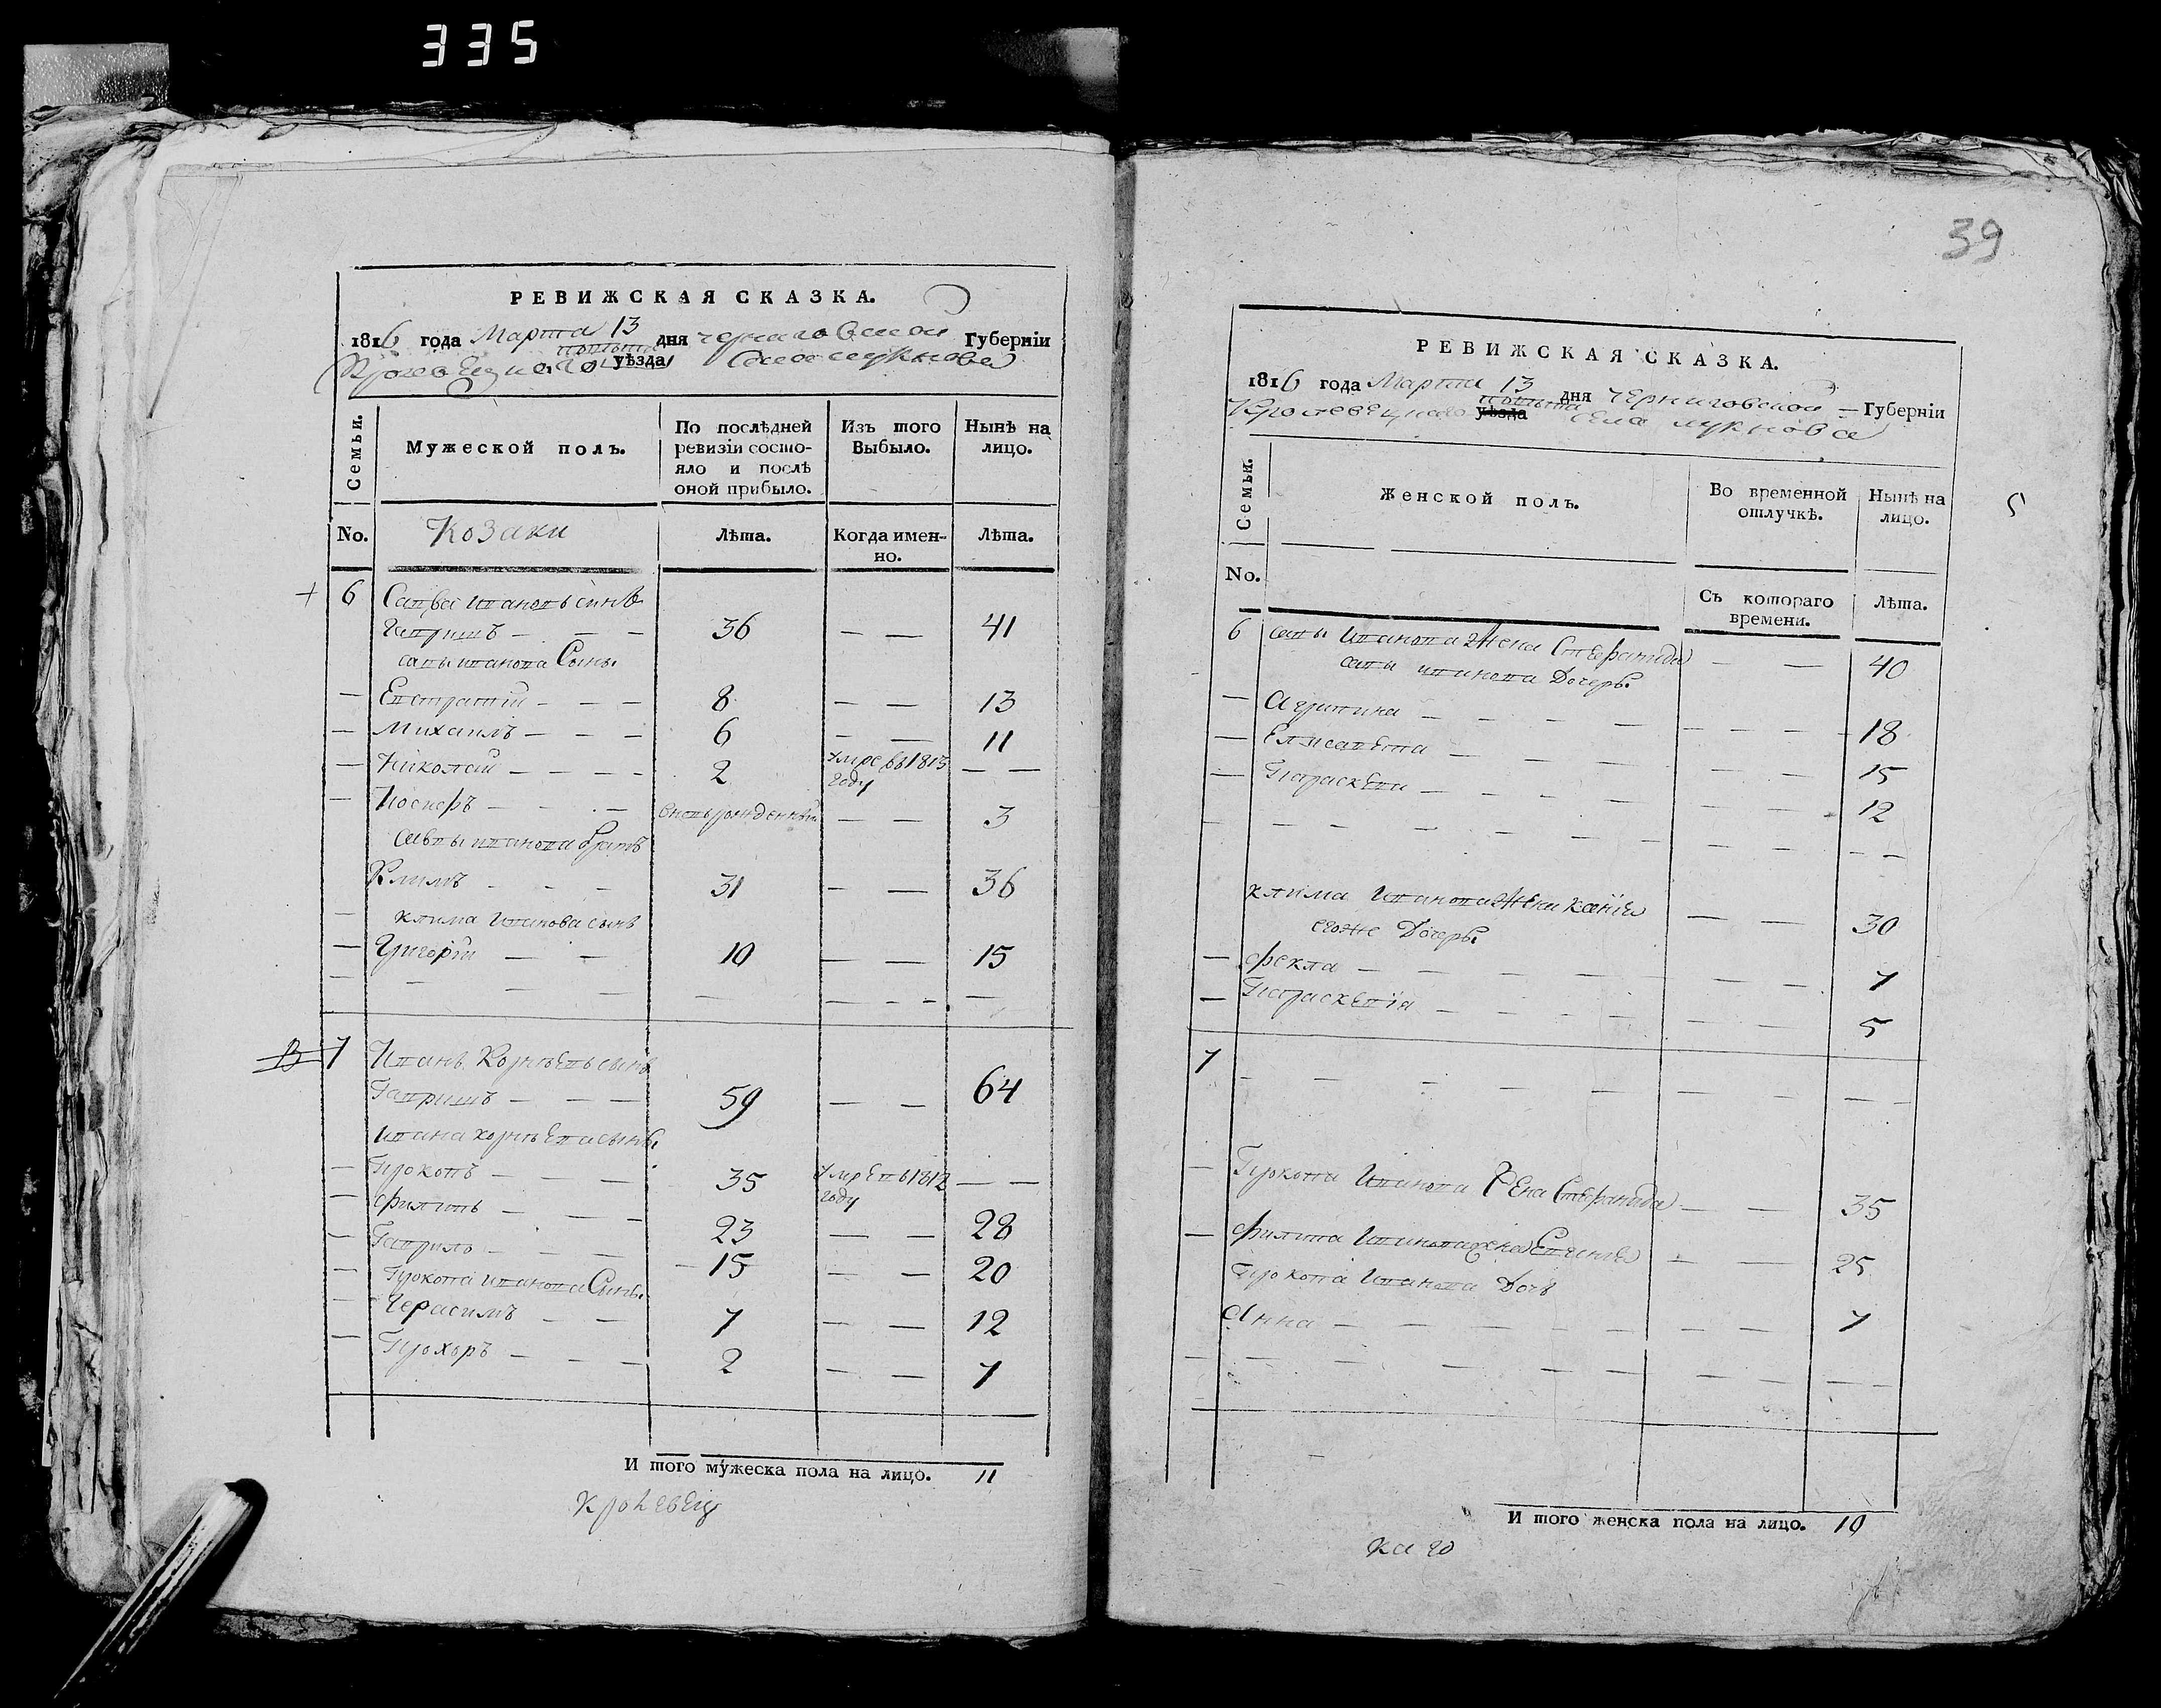 335
РЕВИЖСКАЯ СКАЗКА.
1816 года Марта 13 дня Черниговской Губерніи
повѣта
Кролевецкаго уѣзда Села Лукнова
Семьи.
Мужеской полъ.
По послѣдней ревизіи состояло и послѣ оной прибыло.
Изъ того Выбыло.
Нынѣ на лицо.
No.
Козаки
Лѣта.
Когда именно.
Лѣта.
6 Савва Ивановъ сынъ
Гавришъ — — — 36 — — 41
Савы Иванова Сынъ.
— Евстратій — — — 8 — — 13
— Михаилъ — — — 6 — — 11
— Николай — — — — 2 умре въ 1813 году — —
— Іосифъ — — — вновь рожденный — — 3
Саввы Иванова братъ
Климъ — — — 31 — — 36
— Клима Иванова сынъ
— Григорій — — — 10 — — 15
7 Иванъ Корнѣевъ сынъ
Гавришъ — — — 59 — — 64
Ивана Корнѣева сынъ.
— Прокопъ — — — 35 умре въ 1812 году — —
— Филипъ — — — 23 — — 28
— Гаврило — — — 15 — — 20
— Прокопа Иванова Сынъ.
— Герасимъ — — 7 — — 12
— Прохоръ — — — 2 — — 7
И того мужеска пола на лицо. 11
Кролевец
39
РЕВИЖСКАЯ СКАЗКА.
1816 года Марта 13 дня Черниговской — Губерніи
повѣта
Кролевецкаго уѣзда Села Лукнова
Семьи.
Женской полъ.
Во временной отлучкѣ.
Нынѣ на лицо.
5
No.
Съ котораго времени.
Лѣта.
6 Савы Иванова Жена Стефанида — — 40
Савы Иванова Дочерь.
— Агрипина — — — — — — — 18
— Елисавета — — — — — — 15
— Параскева — — — — — — 12
Клима Иванова Жена Ксенія — — 30
егоже Дочерь.
— Фекла — — — — — — 7
— Параскевія — — — — — 5
7 — — — — — — — — —
— Прокопа Иванова Жена Стефанида — — 35
— Филипа Иванова жена Евгенія — — 25
Прокопа Иванова Дочь
Анна — — — — — — — 7
И того женска пола на лицо. 10
каго